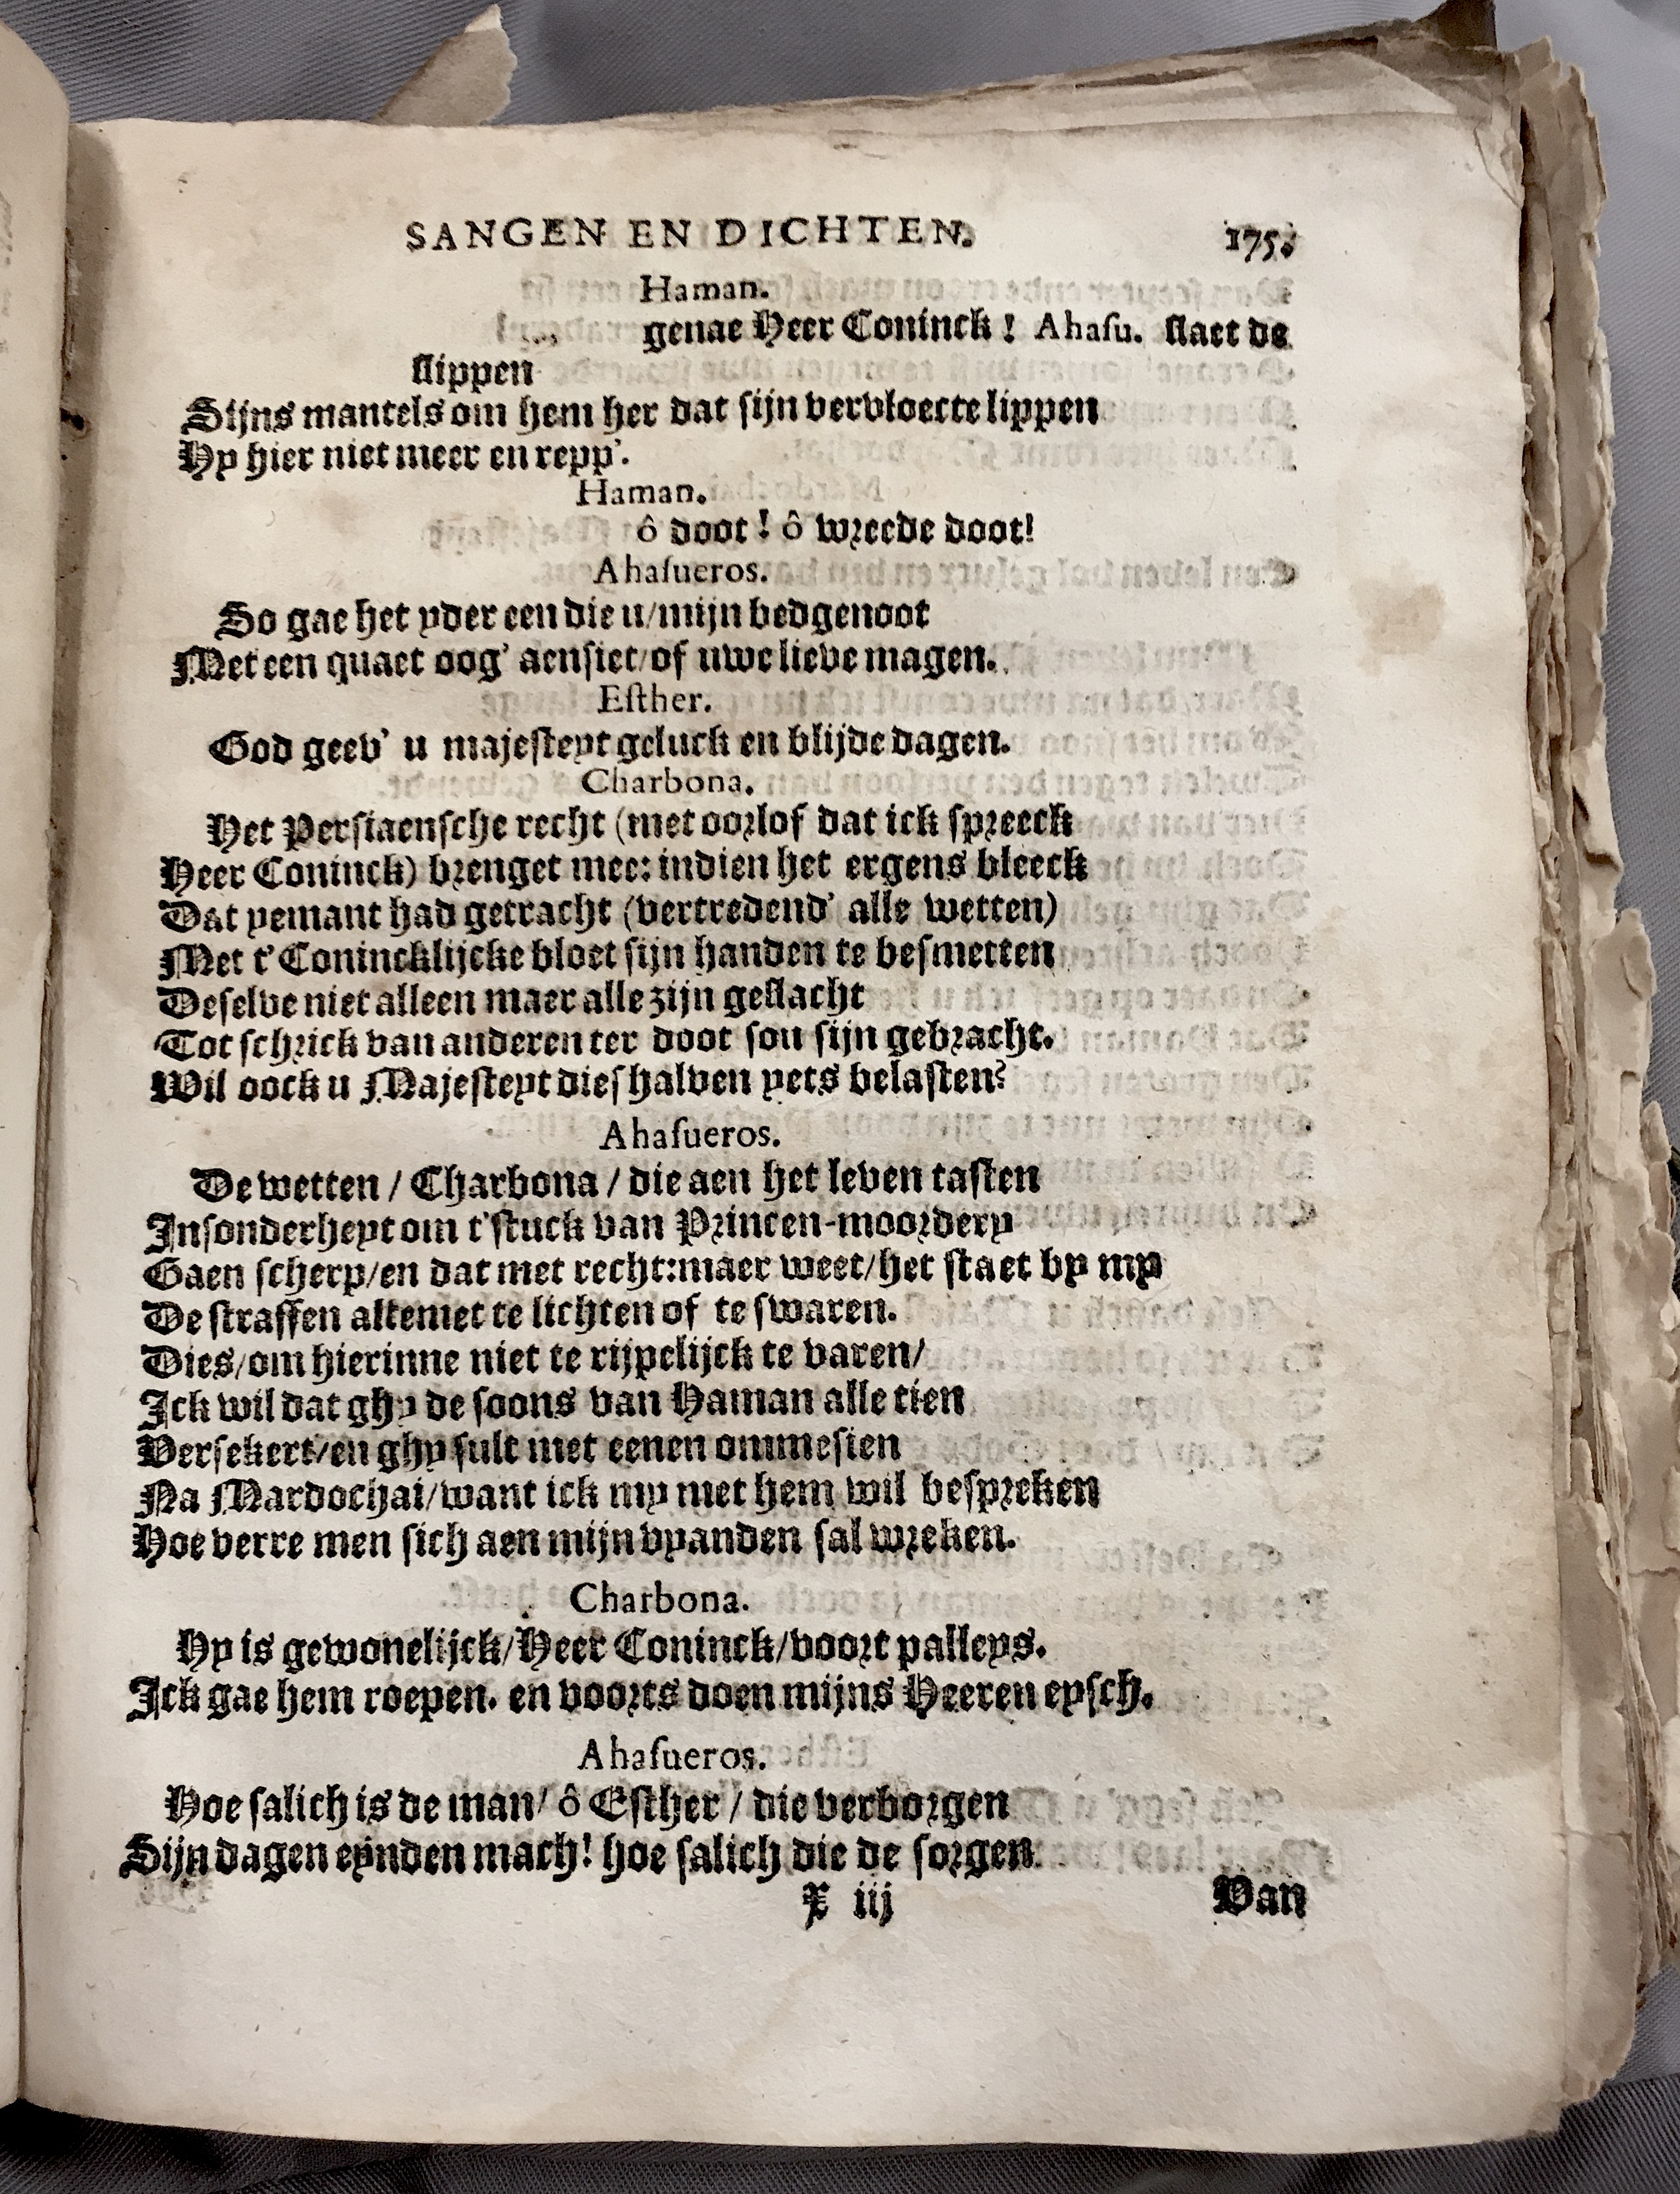 SANGEN EN DICHTEN. 175.
Haman.
genae Heer Coninck! Ahaſu. ſlaet de
ſlippen
Sijns mantels om hem her dat ſijn vervloecte lippen
Hy hier niet meer en repp'.
Haman.
ô doot! ô wreede doot!
Ahaſueros.
So gae het yder een die u/mijn bedgenoot
Met een quaet oog' aenſiet/of uwe lieve magen.
Eſther.
God geev' u majeſteyt geluck en blijde dagen.
Charbona.
Het Perſiaenſche recht (met oorlof dat ick ſpreeck
Heer Coninck) brenget mee: indien het ergens bleeck
Dat yemant had getracht (vertredend' alle wetten)
Met t'Conincklijcke bloet ſijn handen te beſmetten
Deſelve niet alleen maer alle zijn geſlacht
Tot ſchrick van anderen ter doot ſou ſijn gebracht.
Wil oock u Majeſteyt dieſhalven yets belaſten?
Ahaſueros.
De wetten / Charbona / die aen het leven taſten
Inſonderheyt om t'ſtuck van Princen-moordery
Gaen ſcherp/en dat met recht:maer weet/het ſtaet by my
De ſtraffen altemet te lichten of te ſwaren.
Dies/om hierinne niet te rijpelijck te varen/
Ick wil dat ghy de ſoons van Haman alle tien
Verſekert/en ghy ſult met eenen ommeſien
Na Mardochai/want ick my met hem wil beſpreken
Hoe verre men ſich aen mijn vyanden ſal wreken.
Charbona.
Hy is gewonelijck/Heer Coninck/voort palleys.
Ick gae hem roepen. en voorts doen mijns Heeren eyſch.
Ahaſueros.
Hoe ſalich is de man/ ô Eſther / die verborgen
Sijn dagen eynden mach! hoe ſalich die de ſorgen
X iij Van